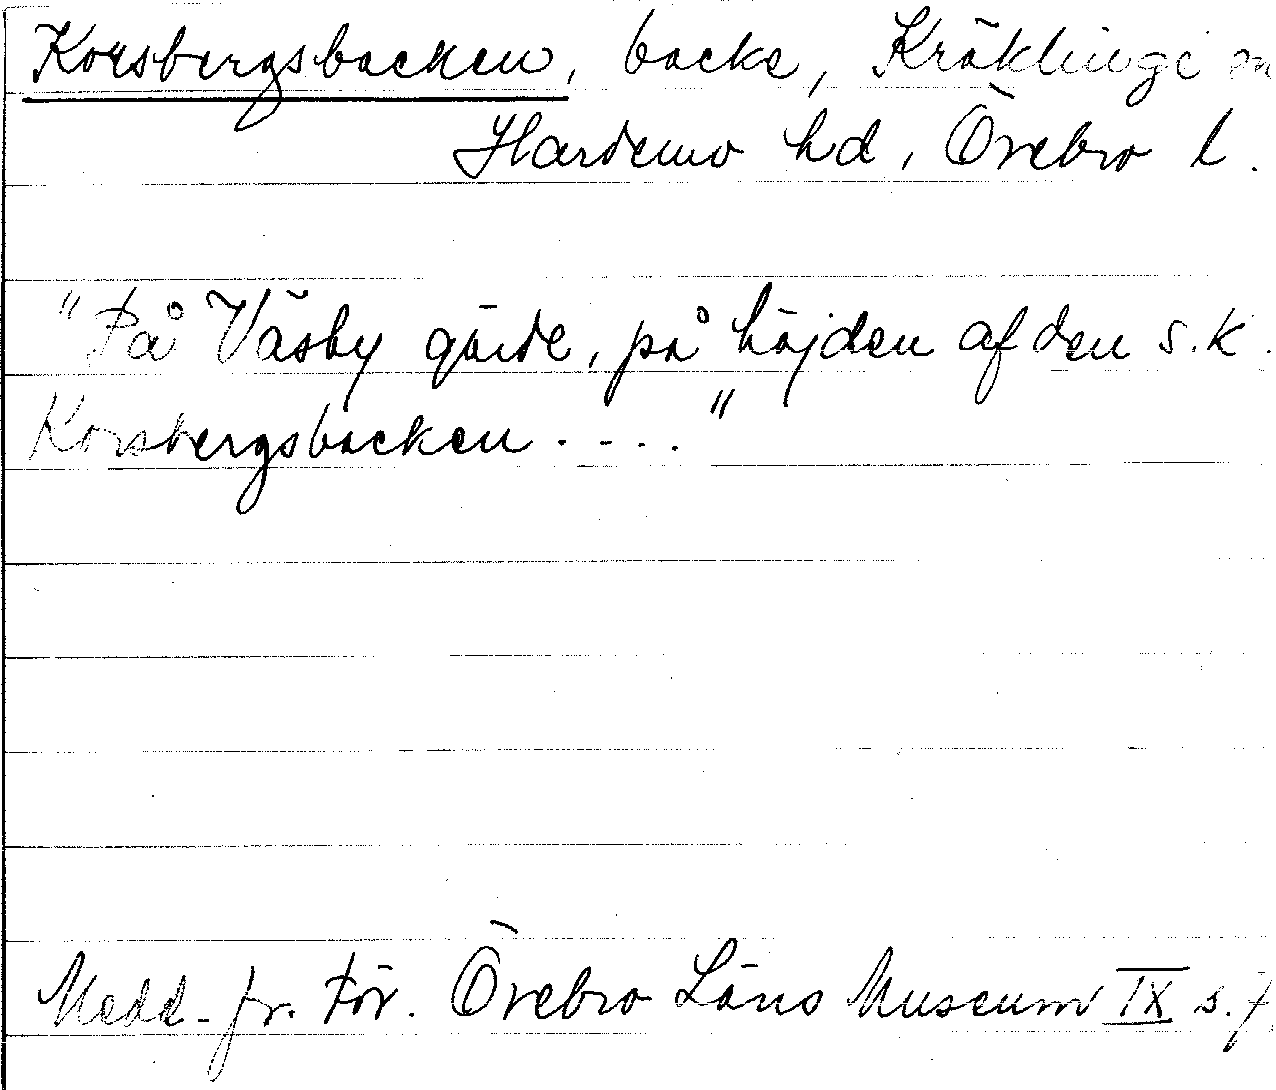 Korsbergsbacken, backe, Kräklinge sn
Hardemo hd, Örebro l.
"På Väsby gärde, på höjden af den s.k.
Korsbergsbacken . - . ."
Medd. fr. För. Örebro Läns Museum IX s.